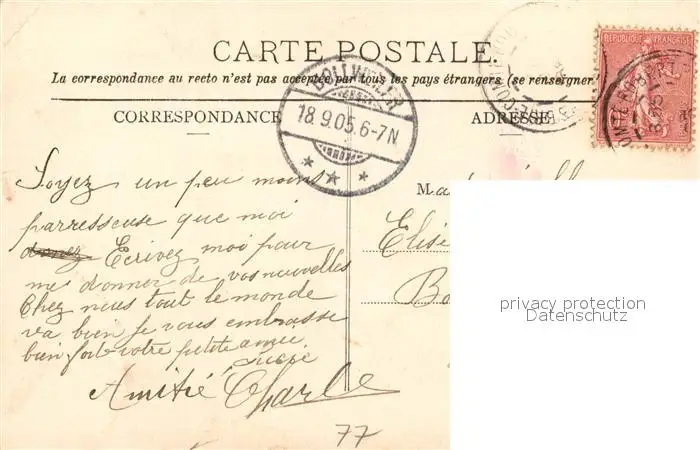 CARTE POSTALE.
La correspondance au recto n'est pas acceptée par tous les pays étrangers (se renseigner
CORRESPONDANCE
ADRESSE
REPUBLIQUE FRANÇAISE
18.9.05.6-7N
Soyez un peu moins
parresseuse que moi
donnez Ecrivez moi pour
me donner de vos nouvelles
Chez nous tout le monde
va bien je vous embrasse
bien fort votre petite amie
Amitié Charle
Elise
77
privacy protection
Datenschutz